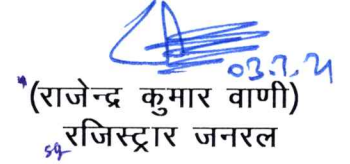 03.7.21
(राजेन्द्र कुमार वाणी)
रजिस्ट्रार जनरल